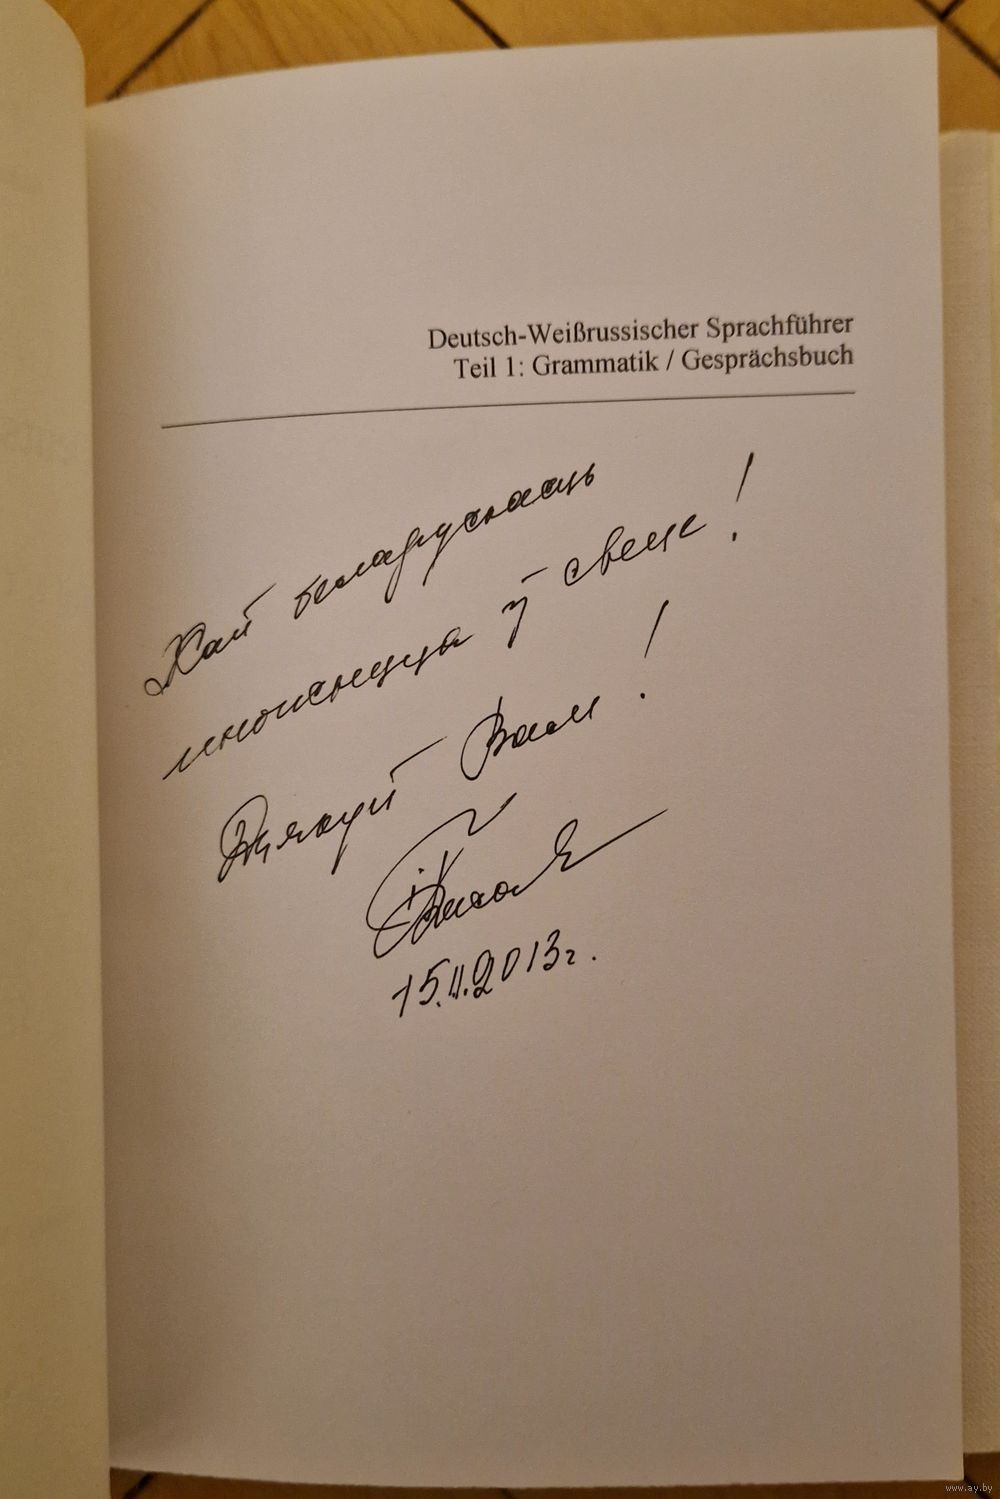 Deutsch-Weißrussischer Sprachführer
Teil 1: Grammatik / Gesprächsbuch
Хай беларускасць
множыцца ў свеце!
Дзякуй Вам!
15.11.2013г.
www.ay.by